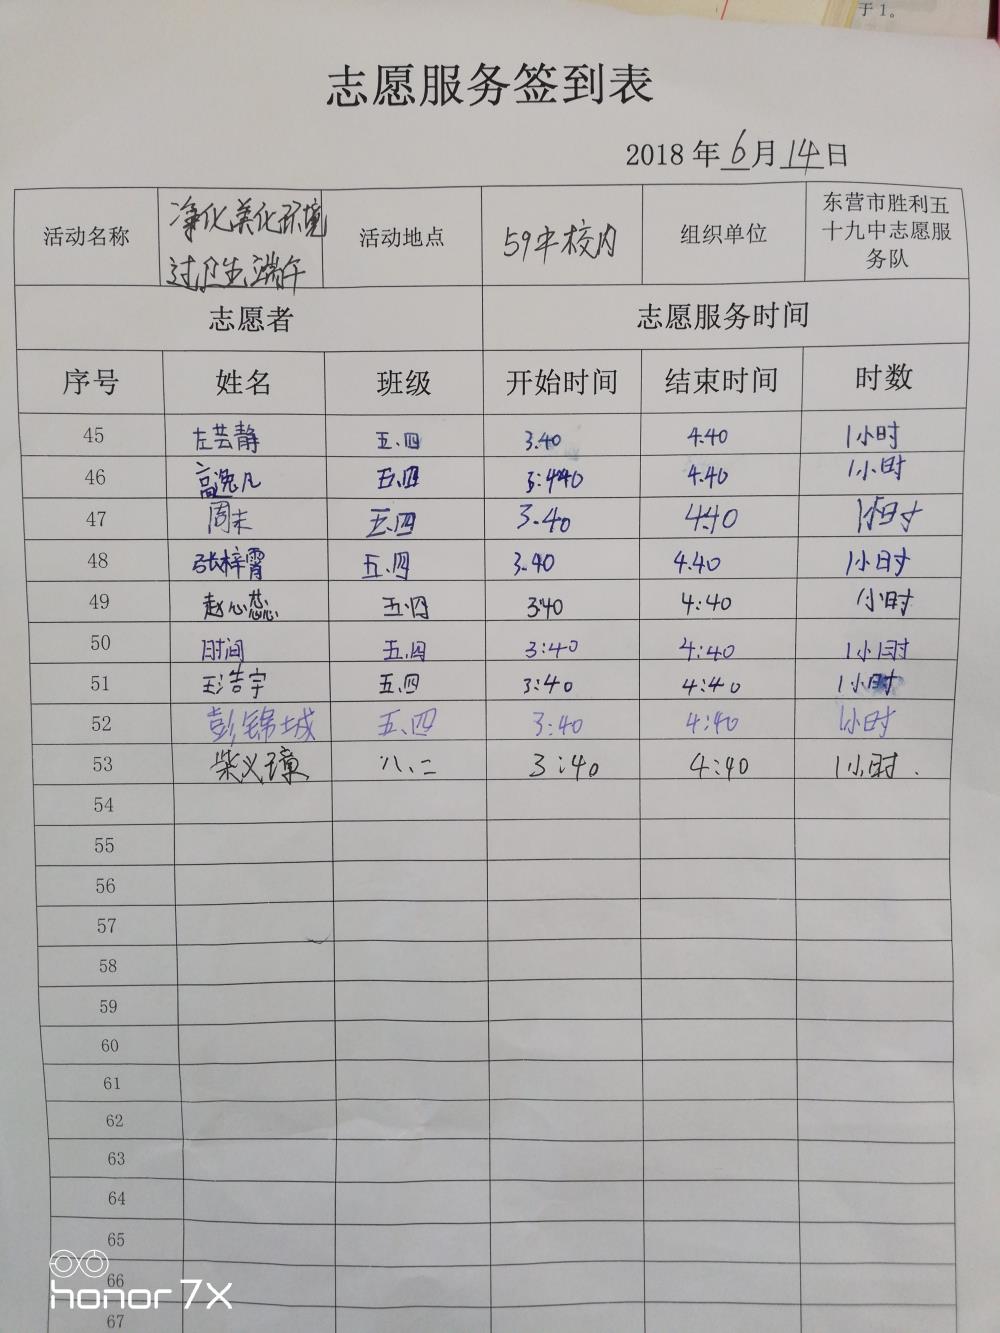 于1。
志愿服务签到表
2018年6月14日
活动名称 净化美化环境过卫生端午 活动地点 59中校内 组织单位 东营市胜利五十九中志愿服务队
志愿者 志愿服务时间
序号 姓名 班级 开始时间 结束时间 时数
45 左芸静 五.四 3.40 4.40 1小时
46 高逸凡 五.四 3:40 4.40 1小时
47 周末 五.四 3.40 4:40 1小时
48 张梓霄 五.四 3.40 4.40 1小时
49 赵心 五.四 3:40 4:40 1小时
50 时间 五.四 3:40 4:40 1小时
51 王浩宇 五.四 3:40 4:40 1小时
52 彭锦城 五.四 3:40 4:40 1小时
53 柴义璋 八.二 3:40 4:40 1小时.
54
55
56
57
58
59
60
61
62
63
64
65
66
67
honor 7X